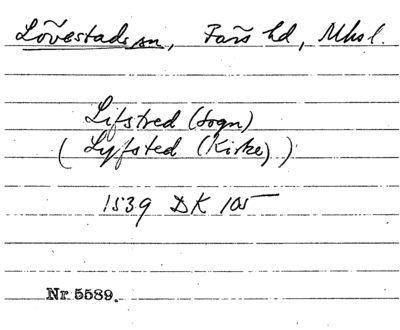 Lövestads sn, Färs hd, Mhsl.
Lifstred (sogn)
( Lyfsted (Kirke) )
1539 DK 105
Nr. 5589.